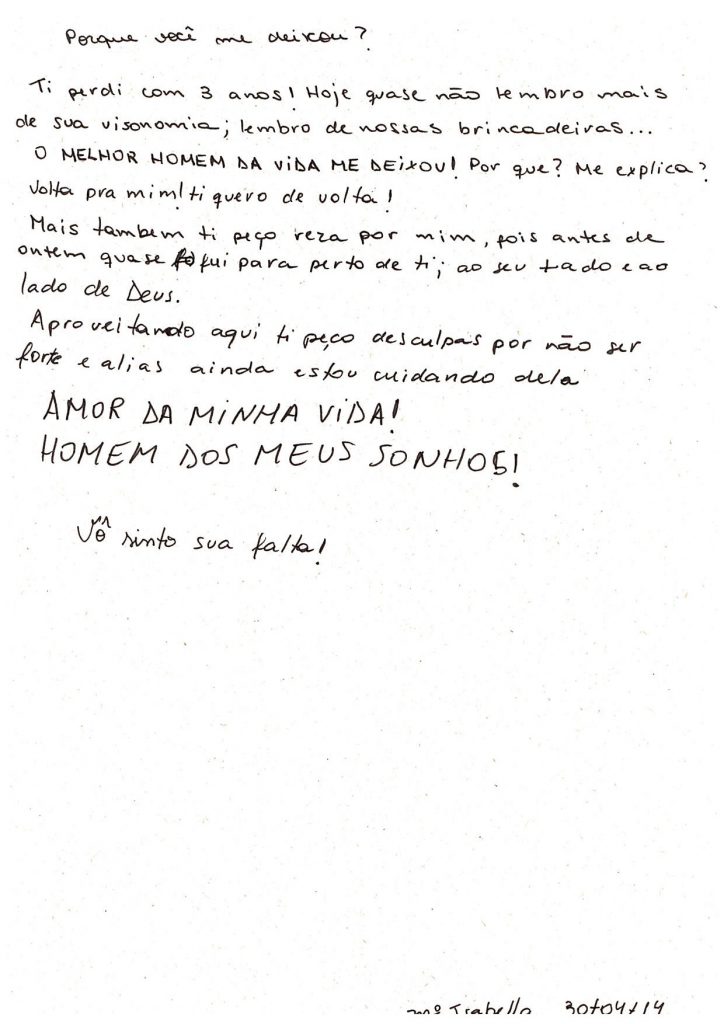 Porque você me deixou?
Ti perdi com 3 anos! Hoje quase não lembro mais
de sua visonomia; lembro de nossas brincadeiras...
O MELHOR HOMEM DA VIDA ME DEIXOU! Por que? Me explica?
Volta pra mim! ti quero de volta!
Mais tambem ti peço reza por mim, pois antes de
ontem quase fui para perto de ti; ao seu lado e ao
lado de Deus.
Aproveitando aqui ti peço desculpas por não ser
forte e alias ainda estou cuidando dela
AMOR DA MINHA VIDA!
HOMEM DOS MEUS SONHOS!
Vô sinto sua falta!
Mª Isabella 30/04/14